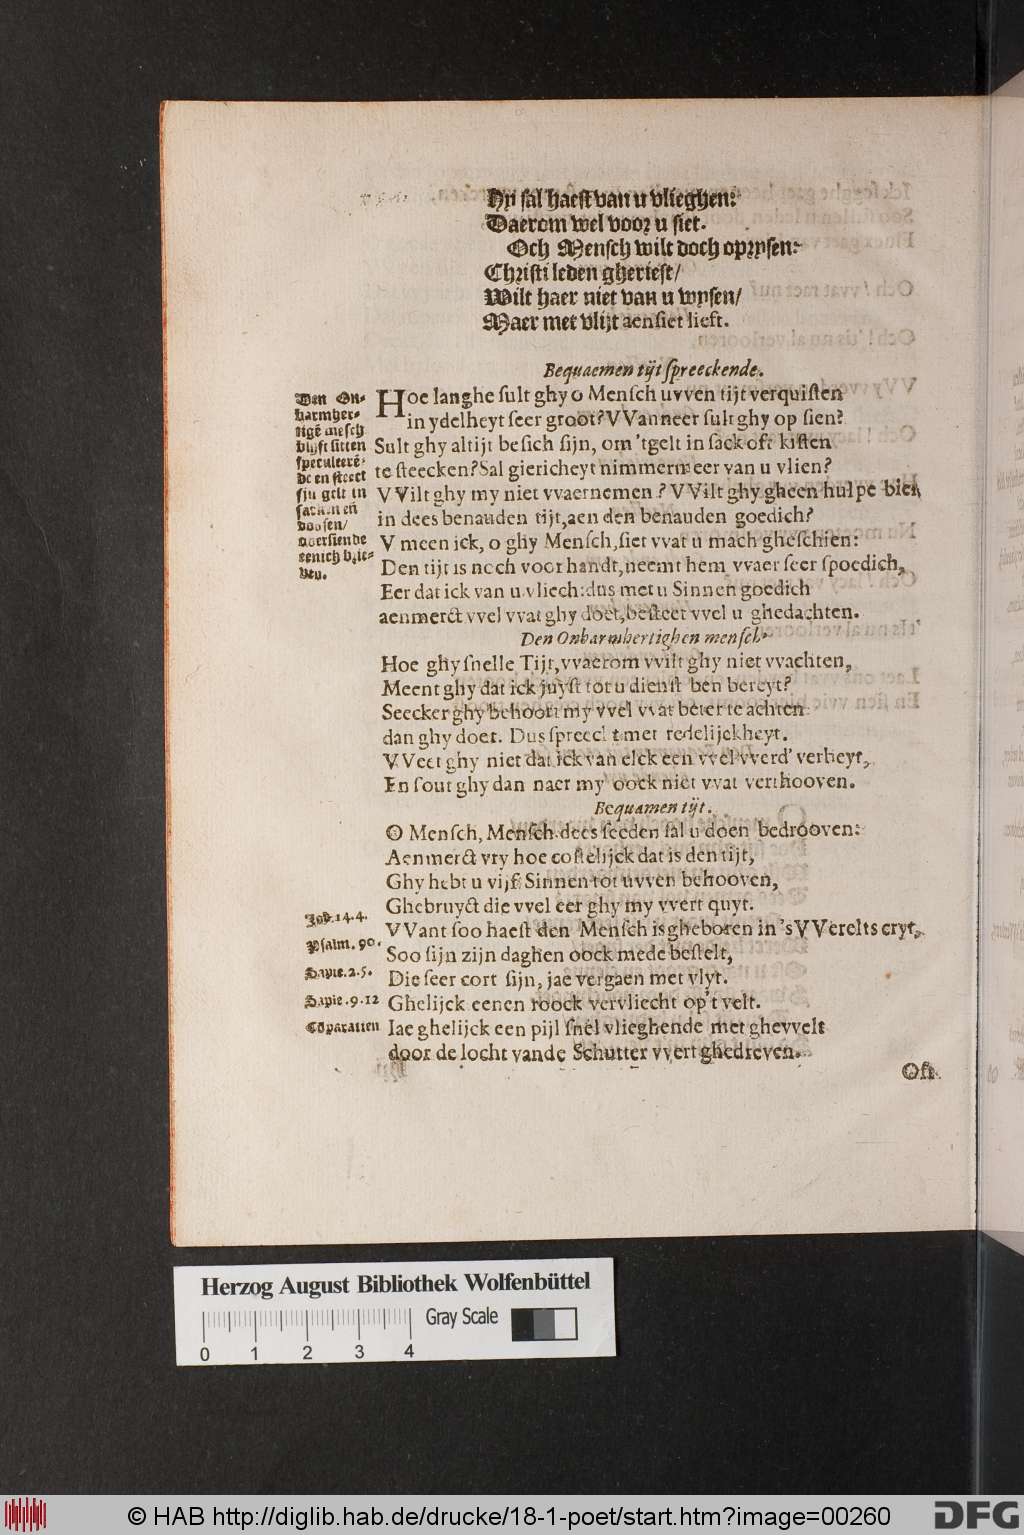 Hy sal haest van u vlieghen:
Daerom wel voor u siet.
Och Mensch wilt doch oprysen:
Christi leden gheriest/
Wilt haer niet van u wysen/
Maer met vlijt aensiet lieft.
Bequaemen tijt spreeckende.
Hoe langhe sult ghy o Mensch uvven tijt verquisten
in ydelheyt seer groot? VVanneer sult ghy op sien?
Sult ghy altijt besich sijn, om 'tgelt in sack oft kisten
te steecken? Sal giericheyt nimmermeer van u vlien?
VVilt ghy my niet vvaernemen? VVilt ghy gheen hulpe bien
in dees benauden tijt, aen den benauden goedich?
V meen ick, o ghy Mensch, siet vvat u mach gheschien:
Den tijt is noch voor handt, neemt hem vvaer seer spoedich,
Eer dat ick van u vliech: dus met u Sinnen goedich
aenmerct vvel vvat ghy doet, besteet vvel u ghedachten.
Den Onbarmhertighen mensch.
Hoe ghy snelle Tijt, vvaerom vvilt ghy niet vvachten,
Meent ghy dat ick juyst tot u dienst ben bereyt?
Seecker ghy behoort my vvel vvat beter te achten
dan ghy doet. Dus spreeckt met redelijckheyt.
VVeet ghy niet dat ick van elck een vvel vverd' verheyt,
En sout ghy dan naer my oock niet vvat verthooven.
Bequamen tijt.
O Mensch, Mensch dees seeden sal u doen bedrooven:
Aenmerct vry hoe costelijck dat is den tijt,
Ghy hebt u vijf Sinnen tot uvven behooven,
Ghebruyct die vvel eer ghy my vvert quyt.
VVant soo haest den Mensch is gheboren in 's VVerelts cryt,
Soo sijn zijn daghen oock mede bestelt,
Die seer cort sijn, jae vergaen met vlyt.
Ghelijck eenen roock vervliecht op't velt.
Iae ghelijck een pijl snel vlieghende met ghevvelt
door de locht vande Schutter vvert ghedreven.
Oft
Den On-
barmher-
tigē mesch
blijft sitten
speculeerē-
de en steect
sijn gelt in
sacken eñ
doosen/
oversiende
eenich brie-
ven.
Job. 14.4.
Psalm. 90.
Sapie. 2.5.
Sapie. 9.12
Cōparatien
Herzog August Bibliothek Wolfenbüttel
Gray Scale
0 1 2 3 4
© HAB http://diglib.hab.de/drucke/18-1-poet/start.htm?image=00260
DFG